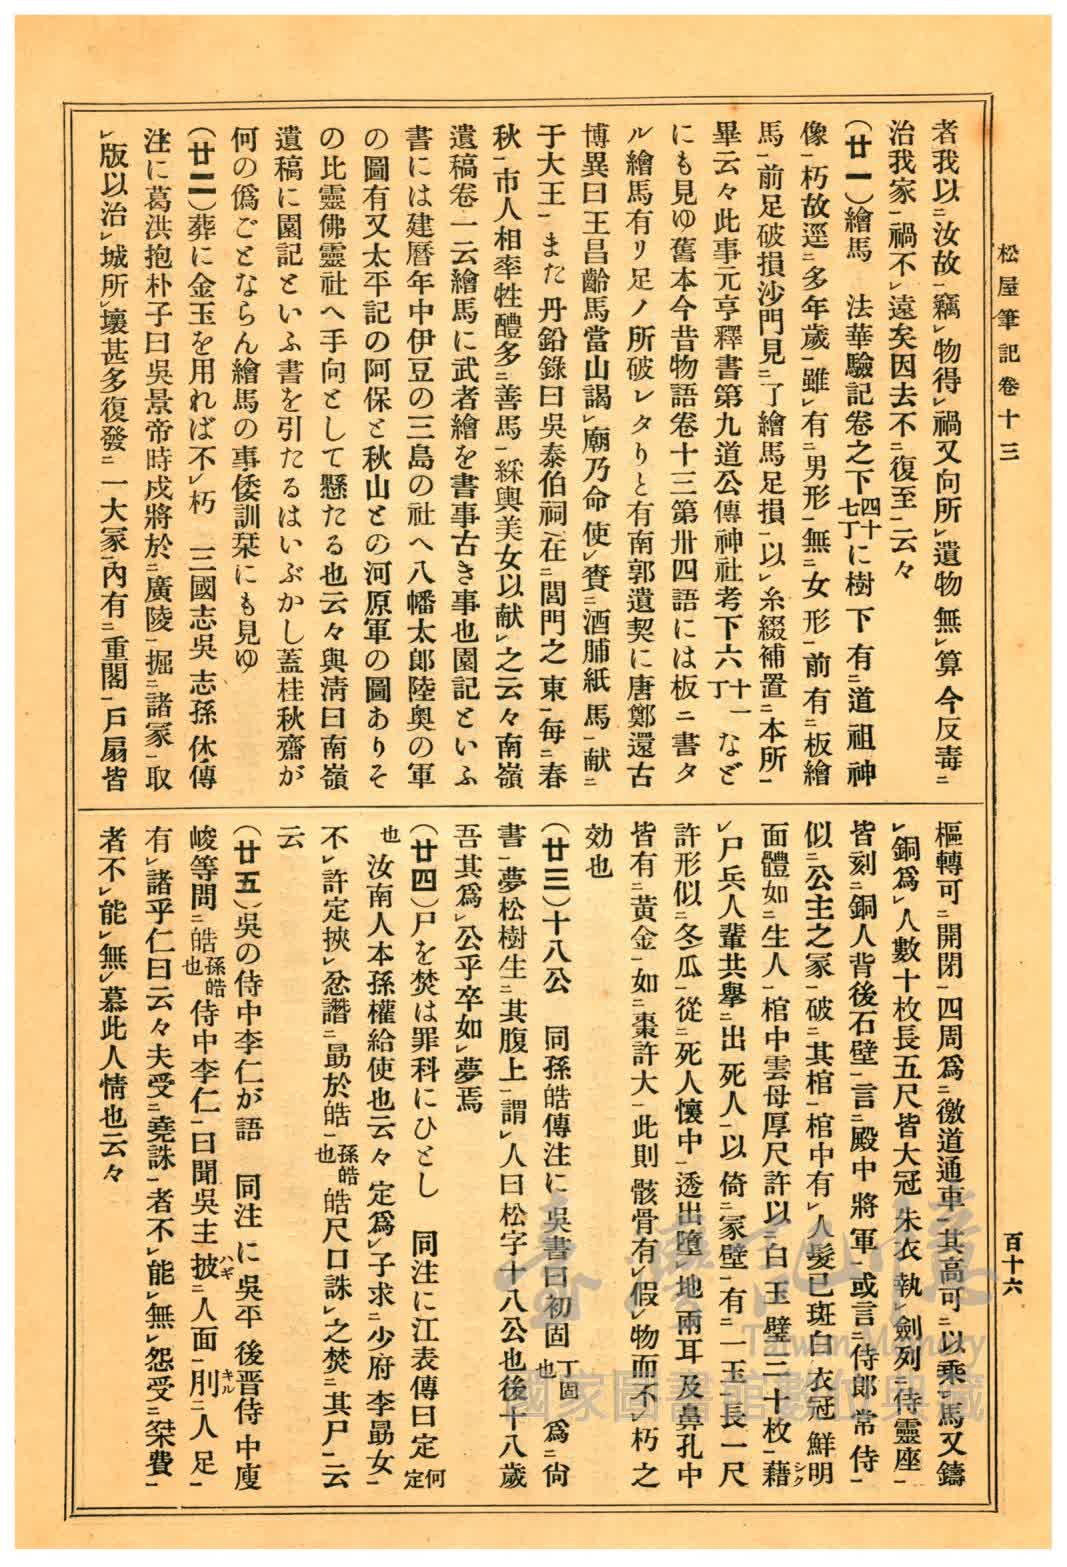 松屋筆記卷十三
百十六
者我以ニ汝故一竊レ物得レ禍又向所レ遺物無レ算今反毒ニ
治我家一禍不レ遠矣因去不ニ復至一云々
(廿一)繪馬　法華驗記卷之下四十七丁に樹下有ニ道祖神
像一朽故逕ニ多年歲一雖レ有ニ男形一無ニ女形一前有ニ板繪
馬一前足破損沙門見ニ了繪馬足損一以レ糸綴補置ニ本所一
畢云々此事元亨釋書第九道公傳神社考下六十一丁などに
にも見ゆ舊本今昔物語卷十三第卅四語には板ニ書タ
ル繪馬有リ足ノ所破レタりと有南郭遺契に唐鄭還古
博異曰王昌齡馬當山謁レ廟乃命使レ賫ニ酒脯紙馬一献ニ
于大王一また丹鉛錄曰吳泰伯祠在ニ閶門之東一每ニ春
秋一市人相率牲醴多ニ善馬一綵輿美女以献レ之云々南嶺
遺稿卷一云繪馬に武者繪を書事古き事也園記といふ
書には建曆年中伊豆の三島の社へ八幡太郎陸奥の軍
の圖有又太平記の阿保と秋山との河原軍の圖ありそ
の比靈佛靈社へ手向として懸たる也云々與淸曰南嶺
遺稿に園記といふ書を引たるはいぶかし蓋桂秋齋が
何の僞ごとならん繪馬の事倭訓栞にも見ゆ
(廿二)葬に金玉を用れば不レ朽　三國志吳志孫休傳
注に葛洪抱朴子曰吳景帝時戍將於ニ廣陵一掘ニ諸冢一取
レ版以治レ城所レ壞甚多復發ニ一大冢一內有ニ重閣一戶扇皆
樞轉可ニ開閉一四周爲ニ徼道通車一其高可ニ以乘レ馬又鑄
レ銅爲レ人數十枚長五尺皆大冠朱衣執レ劍列ニ侍靈座一
皆刻ニ銅人背後石壁一言ニ殿中將軍一或言ニ侍郎常侍一
似ニ公主之冢一破ニ其棺一棺中有レ人髮已斑白衣冠鮮明
面體如ニ生人一棺中雲母厚尺許以ニ白玉璧三十枚一藉シク
レ尸兵人輩共舉ニ出死人一以倚ニ冢壁一有ニ一玉長一尺
許形似ニ冬瓜一從ニ死人懷中一透出墮レ地兩耳及鼻孔中
皆有ニ黃金一如ニ棗許大一此則骸骨有レ假レ物而不レ朽之
効也
(廿三)十八公　同孫皓傳注に吳書曰初固丁固也爲ニ尙
書一夢松樹生ニ其腹上一謂レ人曰松字十八公也後十八歲
吾其爲レ公乎卒如レ夢焉
(廿四)尸を焚は罪科にひとし　同注に江表傳曰定何定
也汝南人本孫權給使也云々定爲レ子求ニ少府李勗女一
不レ許定挾レ忿譖ニ勗於皓一孫皓也皓尺口誅レ之焚ニ其尸一云
云
(廿五)吳の侍中李仁が語　同注に吳平後晋侍中庾
峻等問ニ皓孫皓也侍中李仁一曰聞吳主披ハギニ人面一刖キルニ人足一
有レ諸乎仁曰云々夫受ニ堯誅一者不レ能レ無レ怨受ニ桀費一
者不レ能レ無レ慕此人情也云々
臺灣記憶
Taiwan Memory
國家圖書館數位典藏